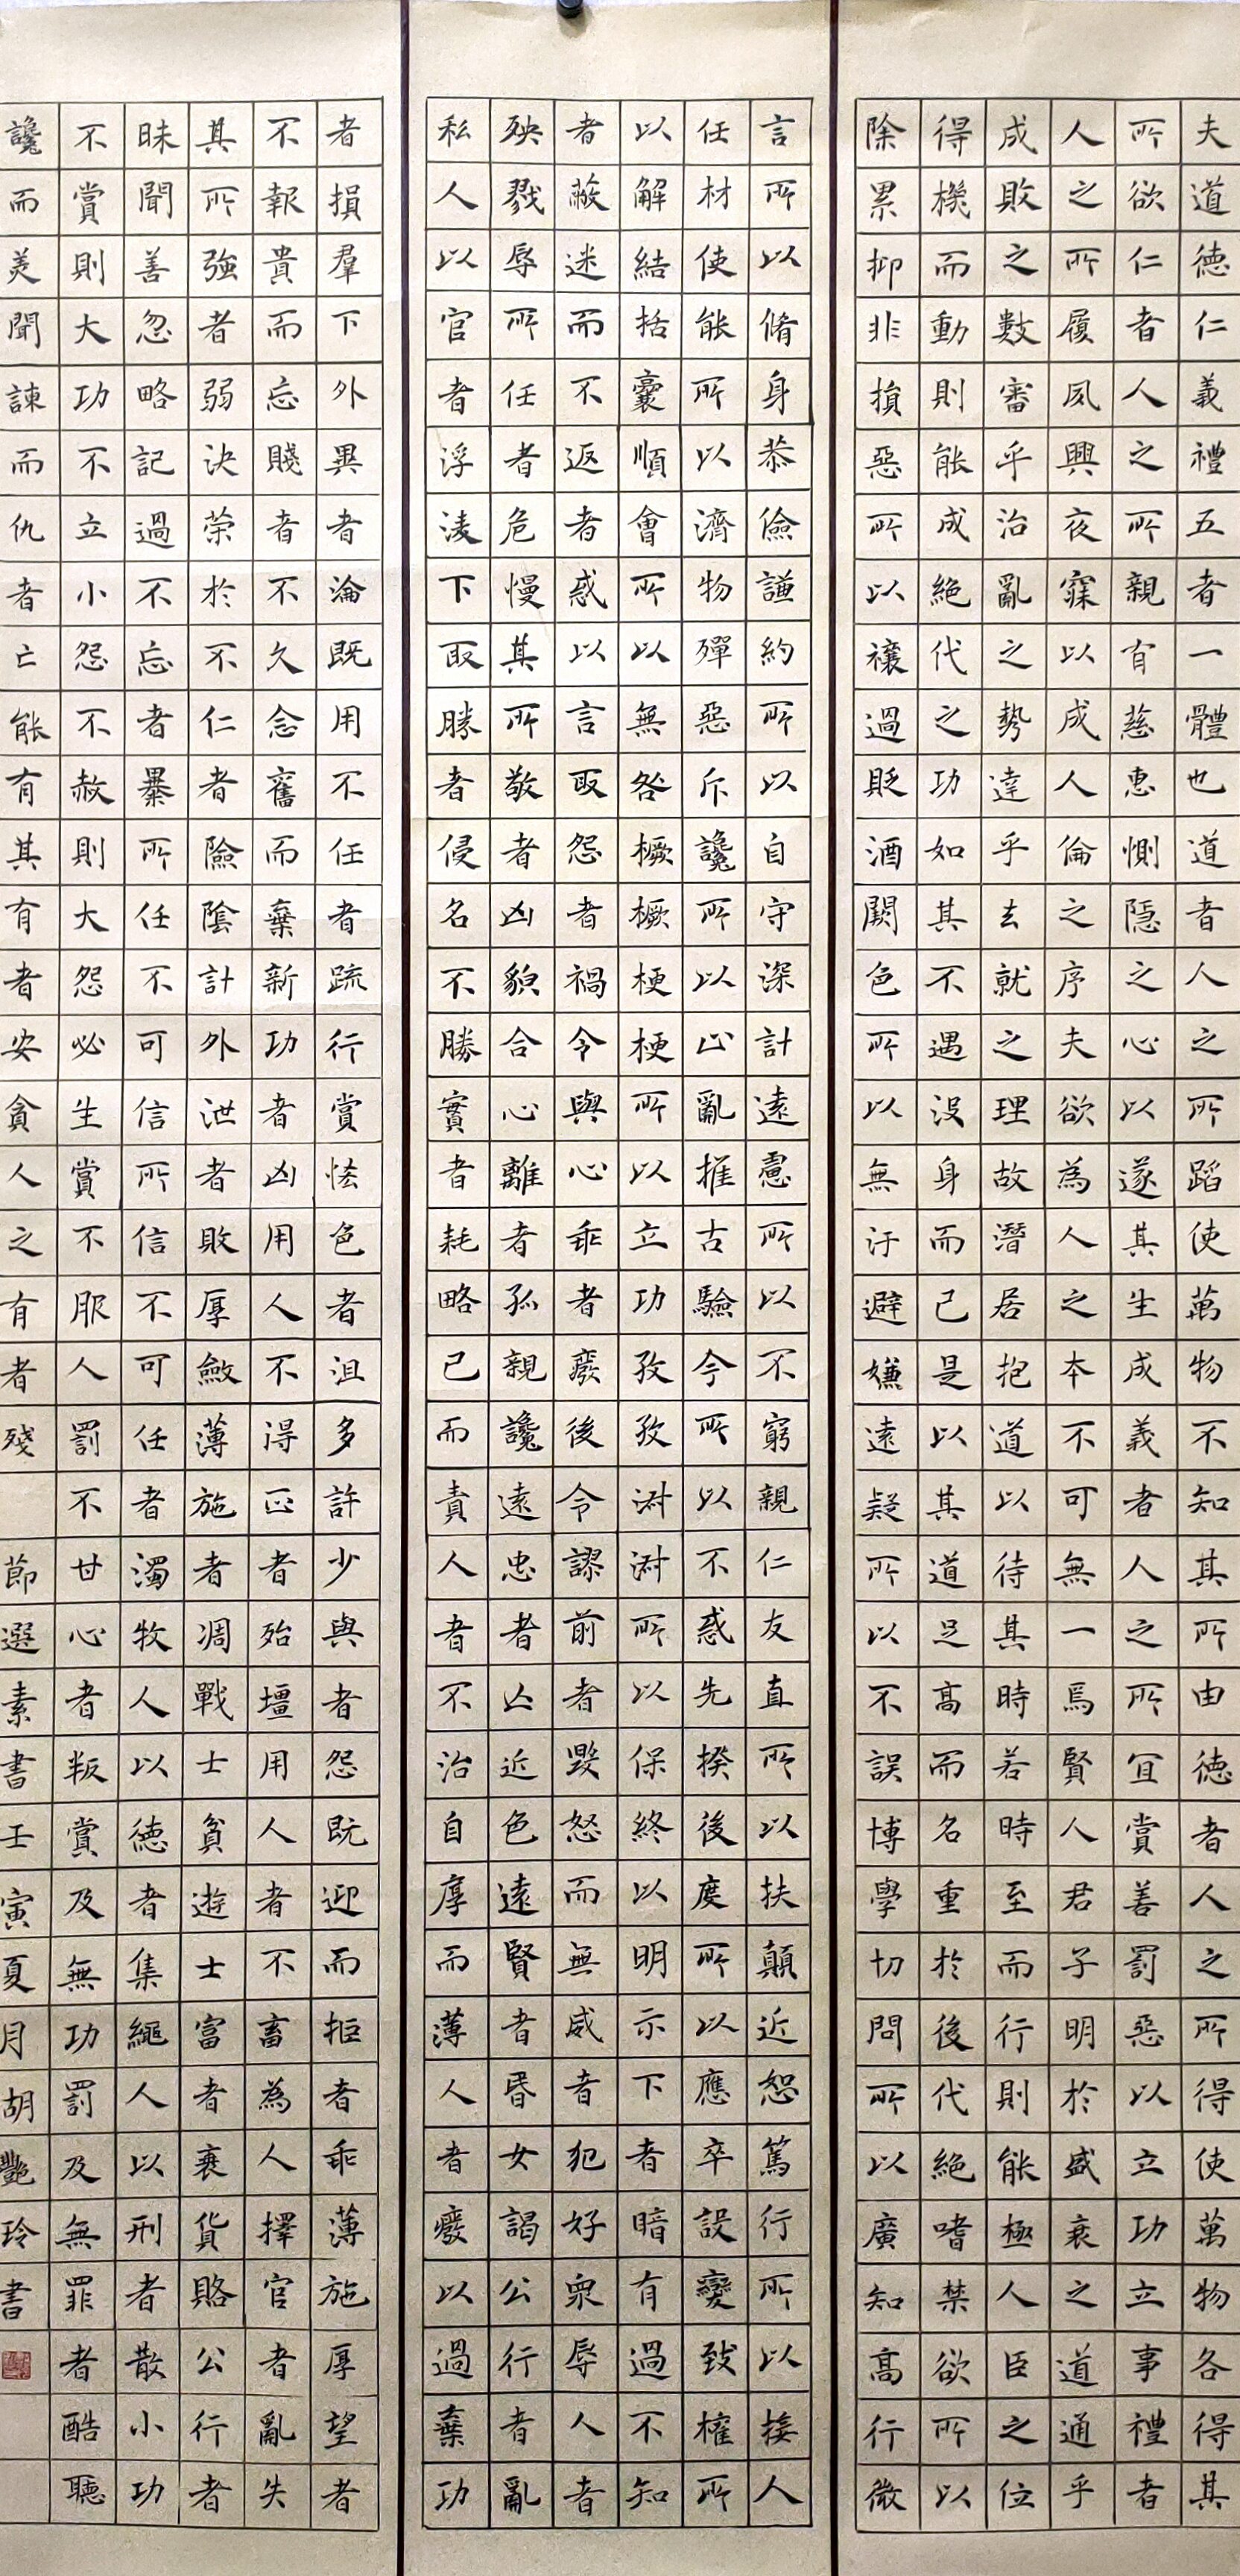 夫道德仁義禮五者一體也道者人之所蹈使萬物不知其所由德者人之所得使萬物各得其
所欲仁者人之所親有慈惠惻隱之心以遂其生成義者人之所宜賞善罰惡以立功立事禮者
人之所履夙興夜寐以成人倫之序夫欲為人之本不可無一焉賢人君子明於盛衰之道通乎
成敗之數審乎治亂之勢達乎去就之理故潛居抱道以待其時若時至而行則能極人臣之位
得機而動則能成絕代之功如其不遇沒身而已是以其道足高而名重於後代絕嗜禁欲所以
除累抑非損惡所以禳過貶酒闕色所以無汙避嫌遠疑所以不誤博學切問所以廣知高行微
言所以脩身恭儉謙約所以自守深計遠慮所以不窮親仁友直所以扶顛近恕篤行所以接人
任材使能所以濟物殫惡斥讒所以止亂推古驗今所以不惑先揆後度所以應卒設變致權所
以解結括囊順會所以無咎橛橛梗梗所以立功孜孜淑淑所以保終以明示下者暗有過不知
者蔽迷而不返者惑以言取怨者禍令與心乖者廢後令謬前者毀怒而無威者犯好眾辱人者
殃戮辱所任者危慢其所敬者凶貌合心離者孤親讒遠忠者亡近色遠賢者昏女謁公行者亂
私人以官者浮淩下取勝者侵名不勝實者耗略己而責人者不治自厚而薄人者廢以過棄功
者損羣下外異者淪既用不任者疏行賞恡色者沮多許少與者怨既迎而拒者乖薄施厚望者
不報貴而忘賤者不久念舊而棄新功者凶用人不得正者殆壃用人者不畜為人擇官者亂失
其所強者弱決榮於不仁者險陰計外泄者敗厚斂薄施者凋戰士貧遊士富者衰貨賂公行者
昧聞善忽略記過不忘者暴所任不可信所信不可任者濁牧人以德者集繩人以刑者散小功
不賞則大功不立小怨不赦則大怨必生賞不服人罰不甘心者叛賞及無功罰及無罪者酷聽
讒而美聞諫而仇者亡能有其有者安貪人之有者殘 節選素書壬寅夏月胡艷玲書